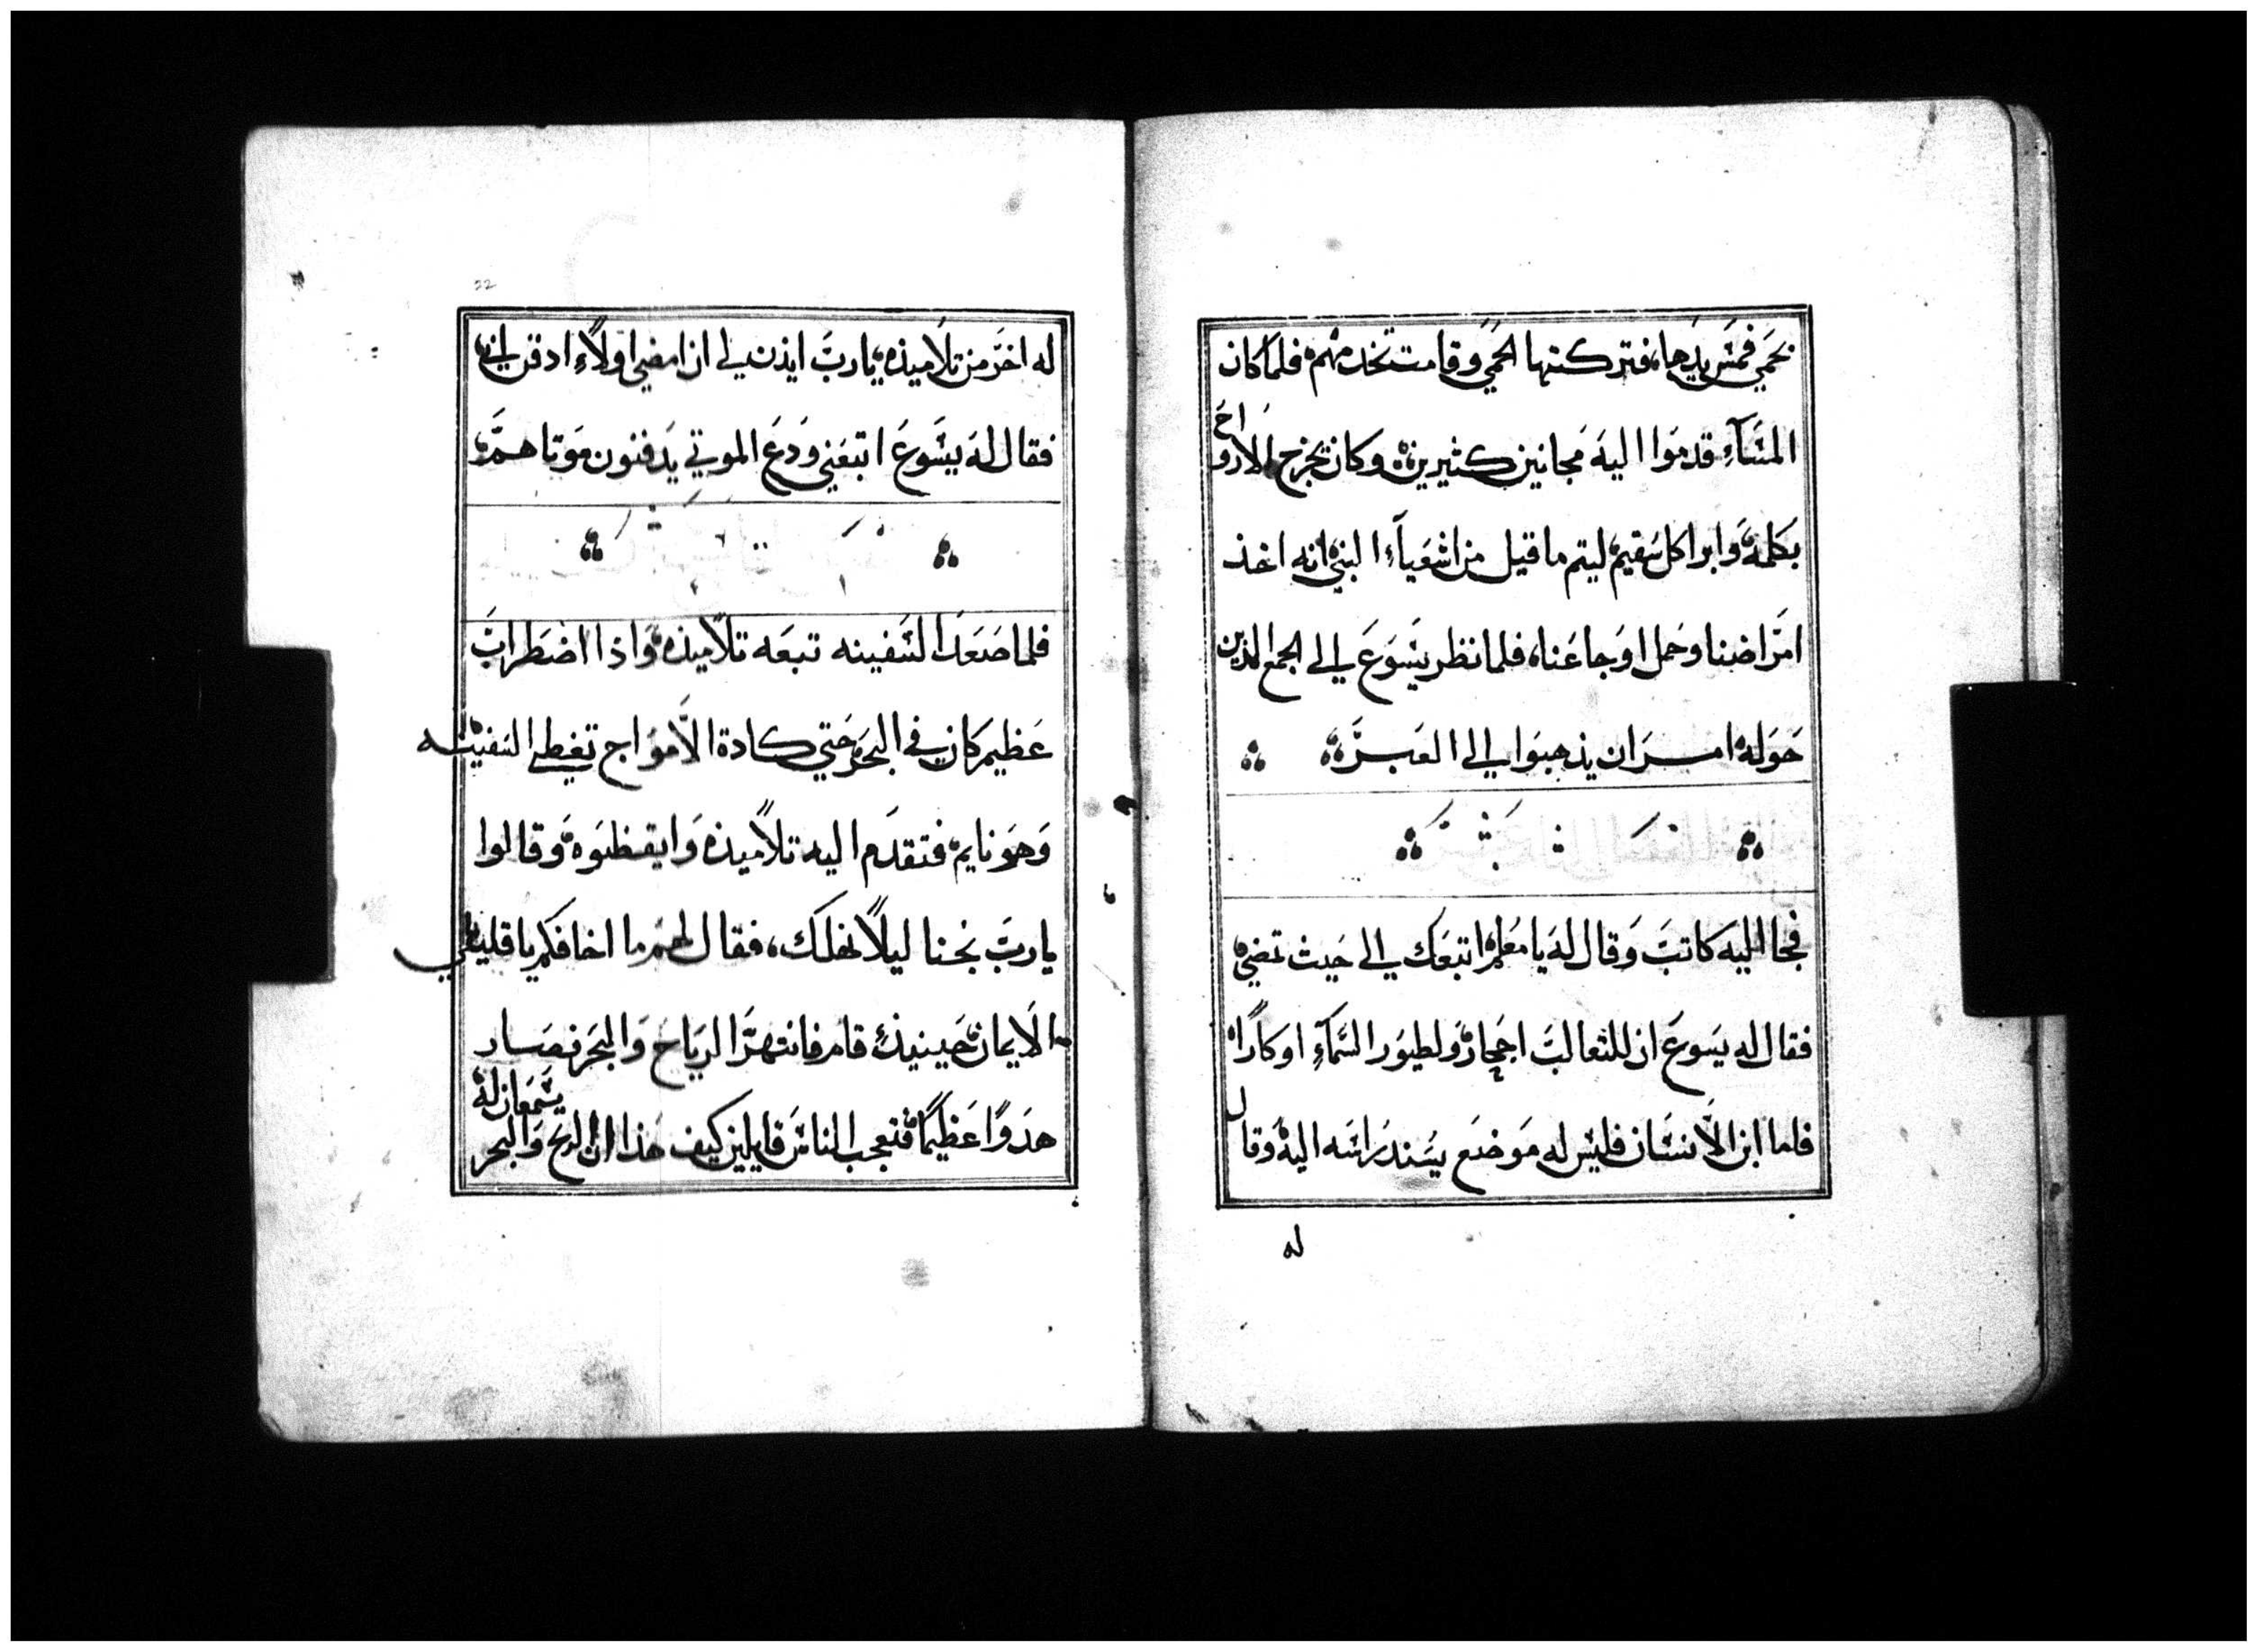 بحمي فمسّ يدها، فتركتها الحمي وقامت تخدمهم، فلما كان
المسَآءِ قدموا اليه مجانين كثيرين، وكان يخرج الارواح
بكلمة، وابرا كل سقيم، ليتم ما قيل من اشعيآء النبي انه اخذ
امراضنا وحمل اوجاعنا، فلما نظر يسوع الي الجمع الذين
حوله امر ان يذهبوا الي العبر
فجا اليه كاتب وقال له يا معلم اتبعك الي حيث تمضي،
فقال له يسوع ان للثعالب اجحار ولطيور السمآءِ اوكارًا،
فاما ابن الانسان فليس له موضع يسند راسه اليه، وقال
له
22
له اخر من تلاميذه، يا رب ايذن لي ان امضي اولاً، ادفن ابي،
فقال له يسوع اتبعني ودع الموتي يدفنون موتاهم،
فلما صعد السفينه تبعه تلاميذه، واذا اضطراب
عظيم كان في البحر، حتي كادة الامواج تغطي السفينه
وهو نايم، فتقدم اليه تلاميذه وايقظوه، وقالوا
يا رب نجنا ليلاً نهلك، فقال لهم ما اخافكم يا قليلي
الايمان، حينيذٍ قام فانتهر الرياح والبحر فصار
هدوًا عظيمًا، فتعجب الناس قايلين كيف هذا ان الريح والبحر
يسمعان له